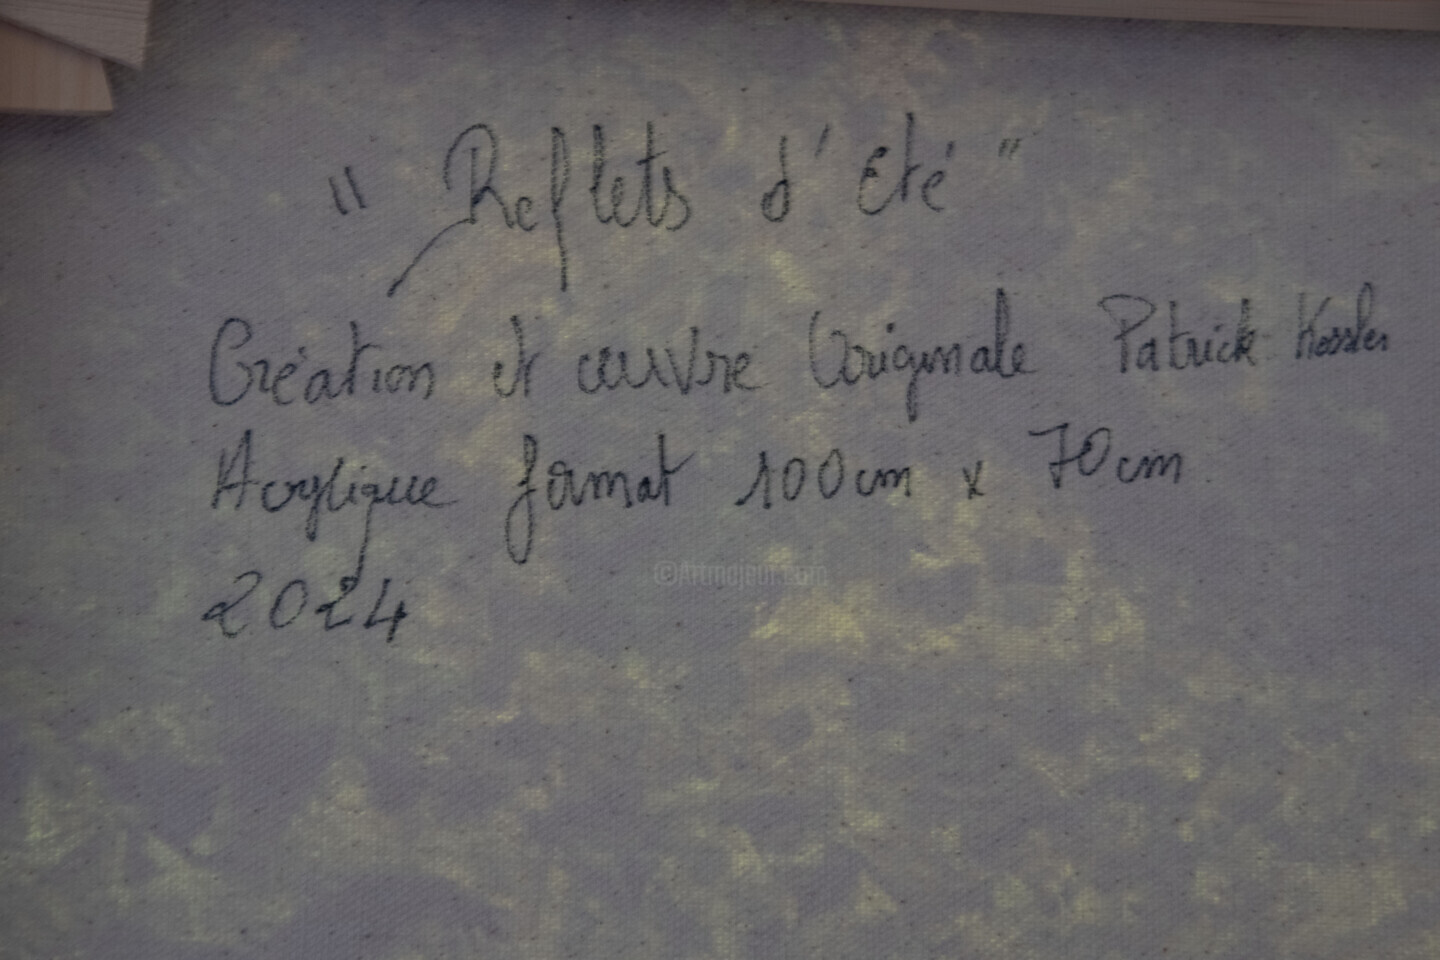 " Reflets d'Eté "
Création et œuvre Originale Patrick Kessler
Acrylique format 100cm x 70cm
2024
©Artmajeur.com